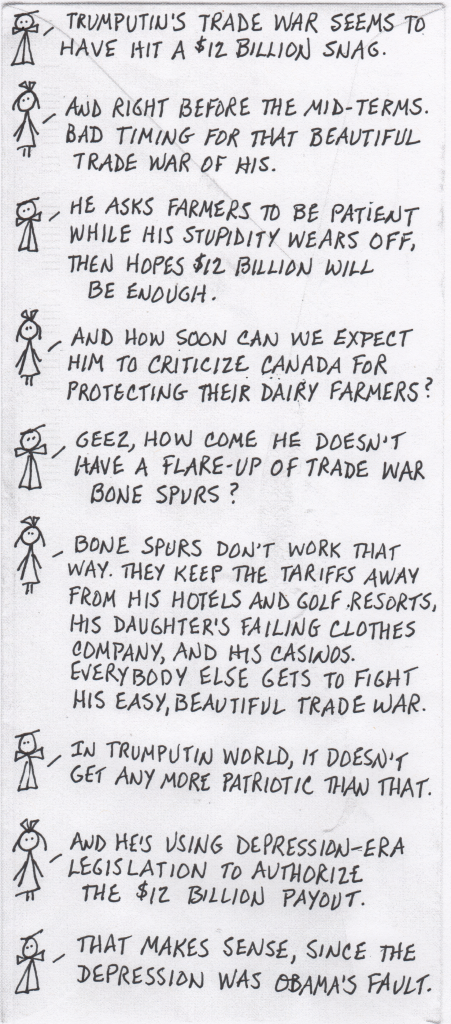 TRUMPUTIN'S TRADE WAR SEEMS TO
HAVE HIT A $12 BILLION SNAG.
AND RIGHT BEFORE THE MID-TERMS.
BAD TIMING FOR THAT BEAUTIFUL
TRADE WAR OF HIS.
HE ASKS FARMERS TO BE PATIENT
WHILE HIS STUPIDITY WEARS OFF,
THEN HOPES $12 BILLION WILL
BE ENOUGH.
AND HOW SOON CAN WE EXPECT
HIM TO CRITICIZE CANADA FOR
PROTECTING THEIR DAIRY FARMERS?
GEEZ, HOW COME HE DOESN'T
HAVE A FLARE-UP OF TRADE WAR
BONE SPURS?
BONE SPURS DON'T WORK THAT
WAY. THEY KEEP THE TARIFFS AWAY
FROM HIS HOTELS AND GOLF RESORTS,
HIS DAUGHTER'S FAILING CLOTHES
COMPANY, AND HIS CASINOS.
EVERYBODY ELSE GETS TO FIGHT
HIS EASY, BEAUTIFUL TRADE WAR.
IN TRUMPUTIN WORLD, IT DOESN'T
GET ANY MORE PATRIOTIC THAN THAT.
AND HE'S USING DEPRESSION-ERA
LEGISLATION TO AUTHORIZE
THE $12 BILLION PAYOUT.
THAT MAKES SENSE, SINCE THE
DEPRESSION WAS OBAMA'S FAULT.